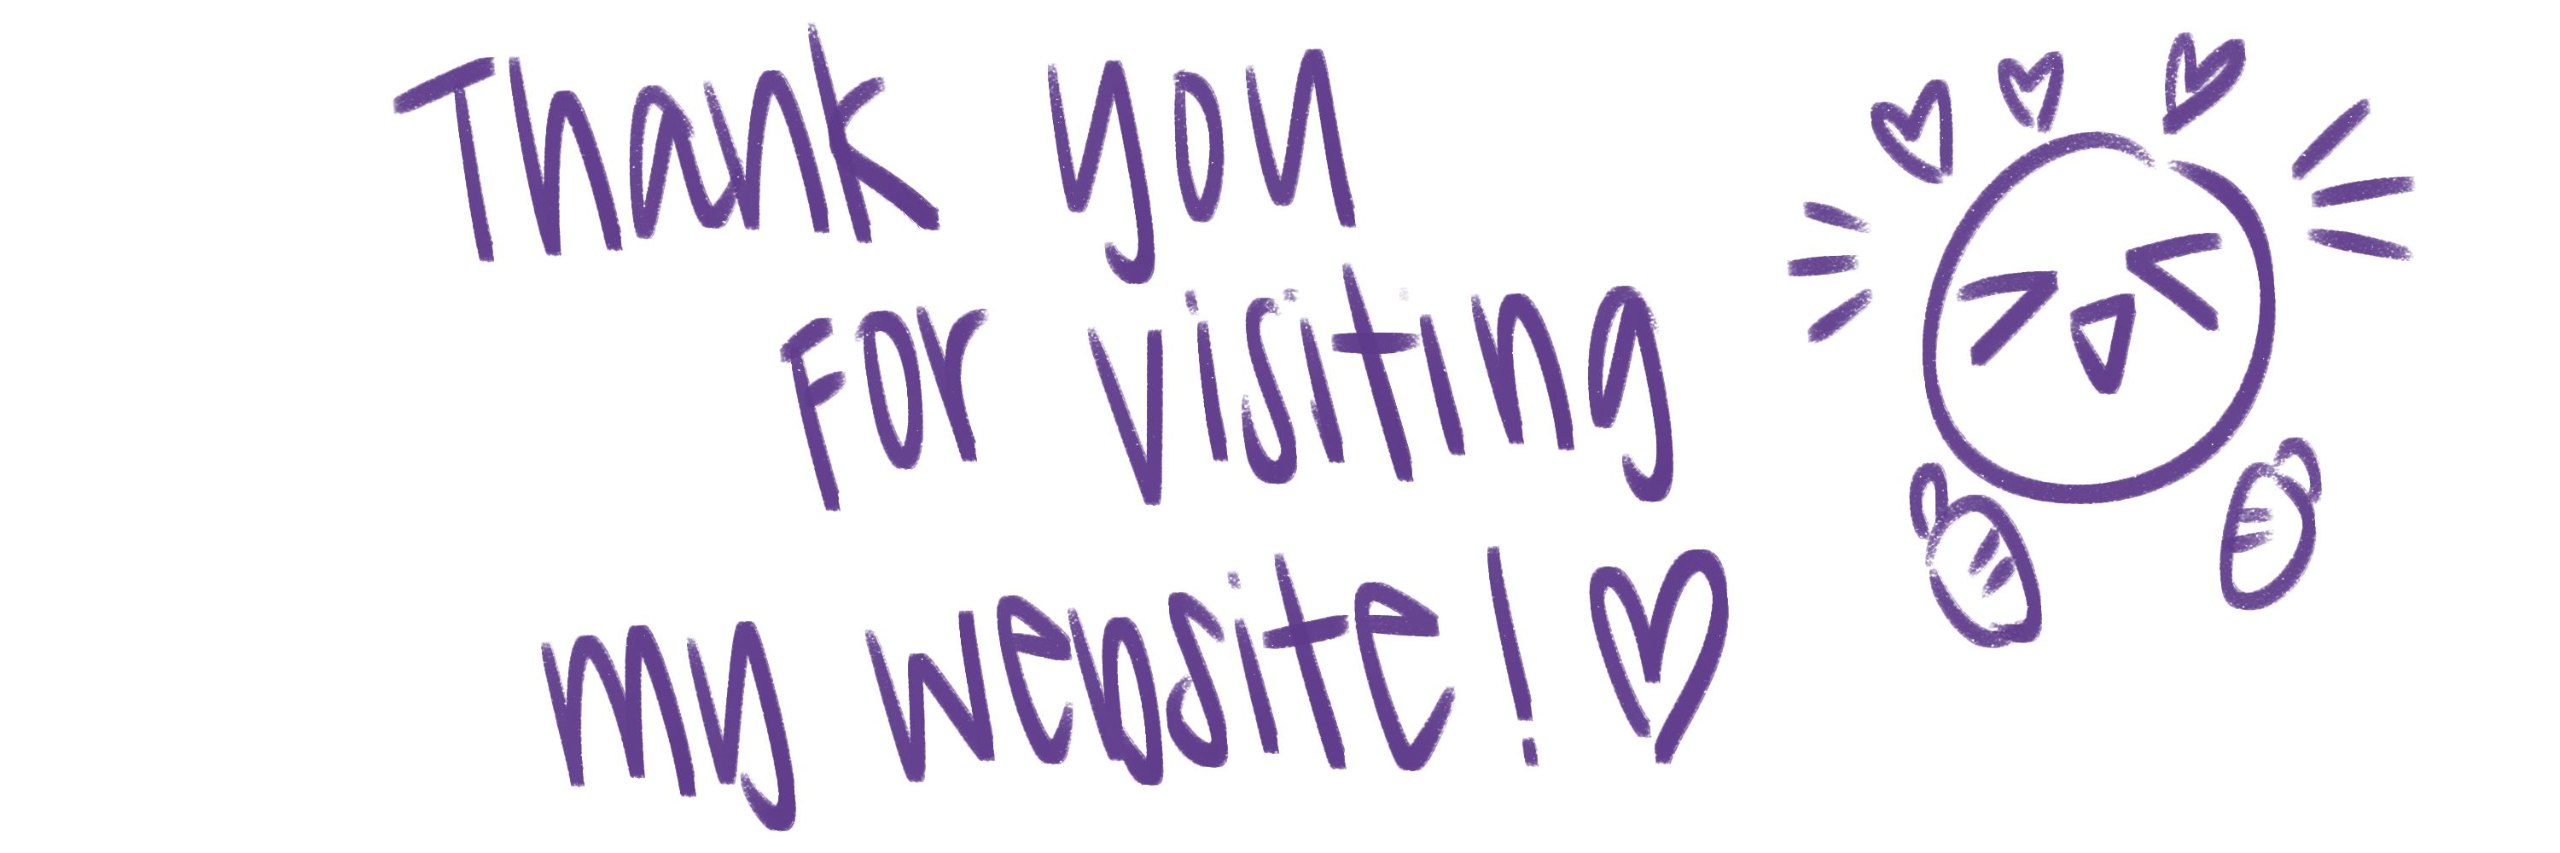 Thank you
for visiting
my website! ♡